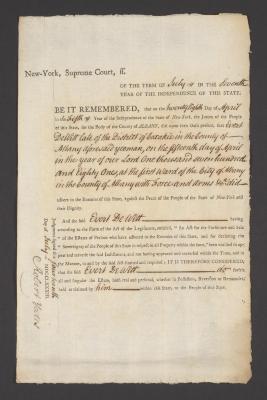 New-York, Supreme Court, ss.
OF THE TERM OF July IN THE Seventh
YEAR OF THE INDEPENDENCE OF THE STATE;
BE IT REMEMBERED, that on the twenty Eighth Day of April
in the Fifth Year of the Independence of the State of New-York, the Jurors of the People
of this State, for the Body of the County of ALBANY, did upon their Oath present, that Evert
DeWitt late of the District of in the County of
Albany aforesaid yeoman, on the fifteenth day of April
in the year of our Lord One thousand seven hundred
and Eighty One, at the first Ward of the City of Albany
in the County of Albany with force and Arms &c. did
adhere to the Enemies of this State, against the Peace of the People of the State of New-York and
their Dignity.
And the said Evert De Witt having
according to the Form of the Act of the Legislature, entitled, "An Act for the Forfeiture and Sale
"of the Estates of Persons who have adhered to the Enemies of this State, and for declaring the
"Sovereignty of the People of this State in respect to all Property within the same," been notified to ap-
pear and traverse the said Indictment, and not having appeared and traversed within the Time, and in
the Manner, in and by the said Act limited and required; IT IS THEREFORE CONSIDERED,
that the said Evert De Witt do forfeit
all and singular the Estate, both real and personal, whether in Possession, Reversion or Remainder,
held or claimed by him within this State, to the People of this State.
Judgment signed this fourteenth
Day of July MDCCLXXXIII.
Robert Yates